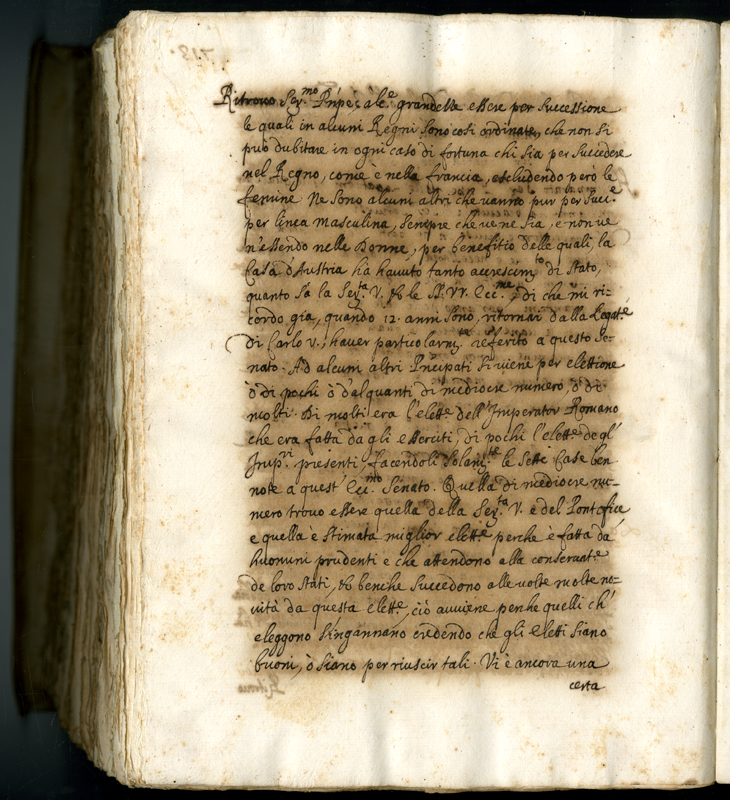 Ritrovo Ser.mo Pñpe; alc.e grandezze essere per successione
le quali in alcuni Regni sono così ordinate, che non si
può dubitare in ogni caso di fortuna chi sia per succedere
nel Regno, come è nella francia, escludendo però le
femine. Ne sono alcuni altri che vanno pur per succ.e
per linea masculina, sempre che ve ne sia, e non ve
n'essendo nelle Donne, per benefitio delle quali, la
Casa d'Austria hà havuto tanto accrescim.to di Stato,
quanto sà la Ser.ta V. & le SS. VV. Ecc.me, di che mi ri-
cordo gia, quando 12. anni sono, ritornai dalla Legat.e
di Carlo V. haver particolarm.te referito a questo Se-
nato. Ad alcuni altri Pñcipati si viene per elettione
ò di pochi ò d'alquanti di mediocre numero, ò di
molti. Di molti era l'elett.e dell'Imperator Romano
che era fatta da gli esserciti, di pochi l'elett.e degl'
Imp.ri presenti, facendoli solam.te le sette Case ben
note a quest'Ecc.mo Senato. Quella di mediocre nu-
mero trovo essere quella della Ser.ta V. e del Pontefice
e quella è stimata miglior elett.e perche è fatta da
huomini prudenti e che attendono alla conservat.e
de loro Stati, & benche succedono alle volte molte no-
vità da questa elett.e, ciò avviene perche quelli ch'
eleggono s'ingannano credendo che gli eletti siano
buoni, ò siano per riuscir tali. Vi è ancora una
certa